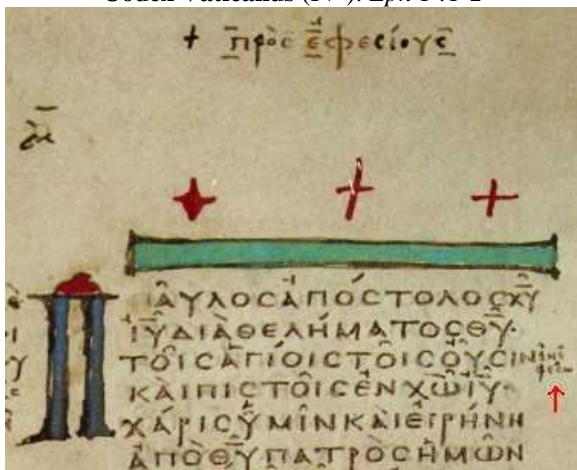 Codex Vaticanus (IV ). Eph. 1 :1-2
+ πρὸς ἐφεσίους
Π
ΑΥΛΟΣ ΑΠΌΣΤΟΛΟΣ ΧΥ
ΙΥ ΔΙᾺ ΘΕΛΉΜΑΤΟΣ ΘΥ·
ΤΟΙ͂Σ ἉΓΊΟΙΣ ΤΟΙ͂Σ ΟΥ͂ΣΙΝ ἐν ἐφέσῳ
ΚΑῚ ΠΙΣΤΟΙ͂Σ ἘΝ ΧΩ ΙΥ·
ΧΆΡΙΣ ὙΜΙ͂Ν ΚΑῚ ΕἸΡΉΝΗ
ἈΠῸ ΘΥ ΠΑΤΡῸΣ ἩΜΩ͂Ν